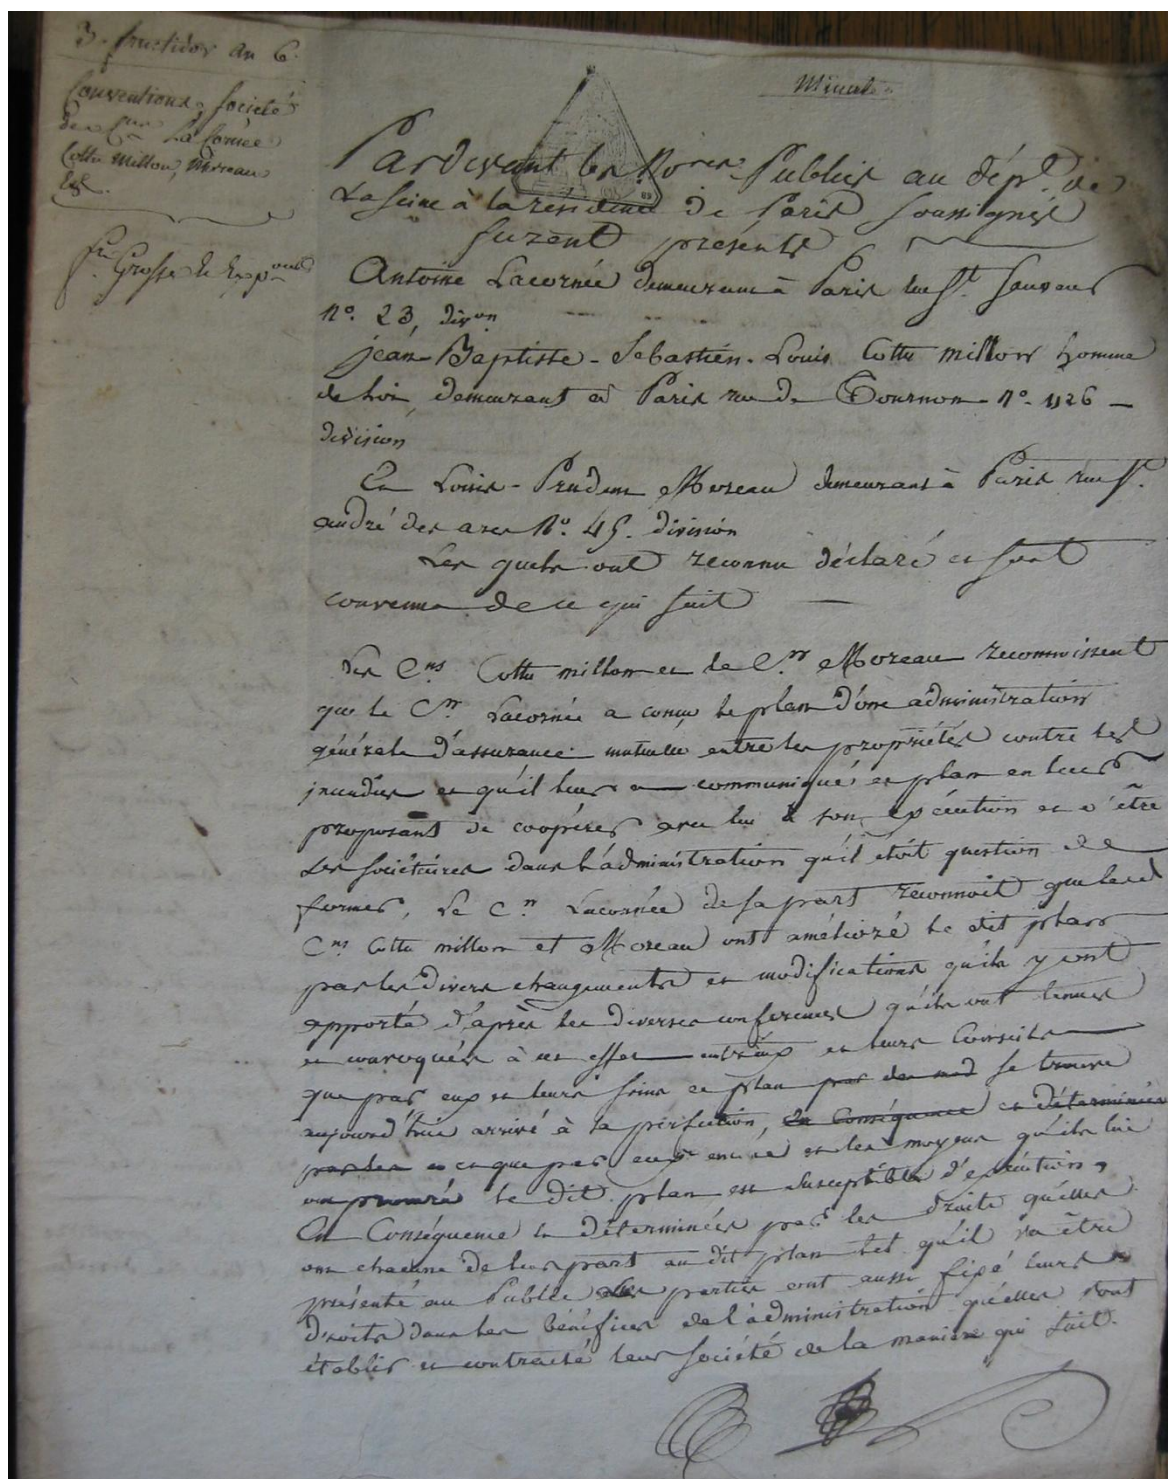 3. fructidor an 6.
Conventions, Société
des C.ens La Cornée
Cottu Millon, Moreau
Minute
Pardevant les No.res Publics au dép.t de
La Seine à la résidence de Paris soussignés
furent présents
Antoine Lacornée demeurant à Paris rue S.t Sauveur
n.o 23, div.on
jean-Baptiste-Sebastien-Louis Cottu millon homme
de Loi, demeurant à Paris rue de Tournon n.o 1126
division
Et Louis-Prudent Moreau demeurant à Paris rue S.t
andré des arcs N.o 45. division
Les quels ont reconnu déclaré et sont
convenus de ce qui suit
Les C.ns Cottu millon et le C.en Moreau reconnoissent
que le C.en Lacornée a concu le plan d'une administration
générale d'assurance mutuelle entre les propriétés contre les
incendies et qu'il leur a communiqué ce plan en leur
proposant de coopérer avec lui à son exécution et d'être
ses sociétaires dans l'administration qu'il étoit question de
former, Le C.n Lacornée de sa part reconnoit que lesd.
C.ns Cottu millon et Moreau ont amélioré le dit plan
par les divers changements et modifications qu'ils y ont
apporté d'après les diverses conferences qu'ils ont tenues
et convoquées à cet effet entr'eux et leurs Conseils
que par eux et leurs soins ce plan se trouve
aujourd'hui arrivé à sa perfection, en Conséquence et déterminés
par les et ce que par eux et les moyens qu'ils lui
ont procuré le dit plan est susceptible d'exécution,
En Conséquence et déterminées par les droits qu'elles
ont chacune de leur part au dit plan tel qu'il va être
présenté au Public les parties ont aussi fixé leurs
droits dans les bénéfices de l'administration qu'elles vont
établir et contracté leur société de la maniere qui suit.